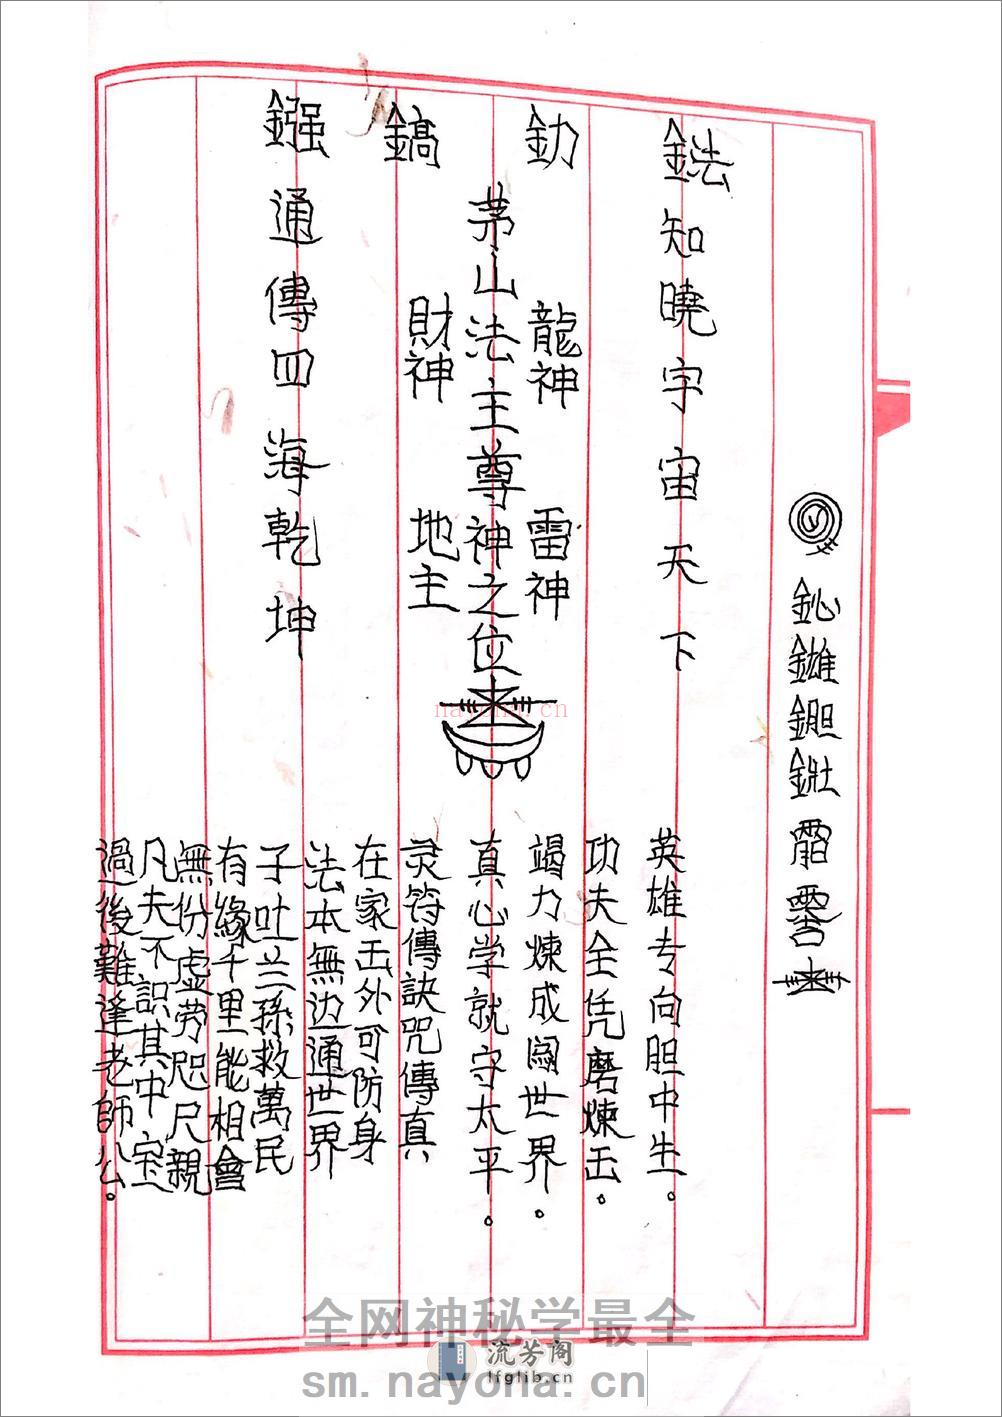 鉍䧺鉭鉎
鍅知曉宇宙天下
釛
龍神
雷神
茅山法主尊神之位
鎬
財神
地主
鏹通傳四海乾坤
英雄专向胆中生。
功夫全凭磨煉玉。
竭力煉成闖世界。
真心学就守太平。
灵符傳訣咒傳真
在家玉外可防身
法本無边通世界
子吐兰孫救萬民
有緣千里能相會
無份虚劳咫尺親
凡夫不識其中宝
過後難逢老師公。
nayona.cn
全网神秘学最全
流芳阁
lfglib.cn
sm.nayona.cn